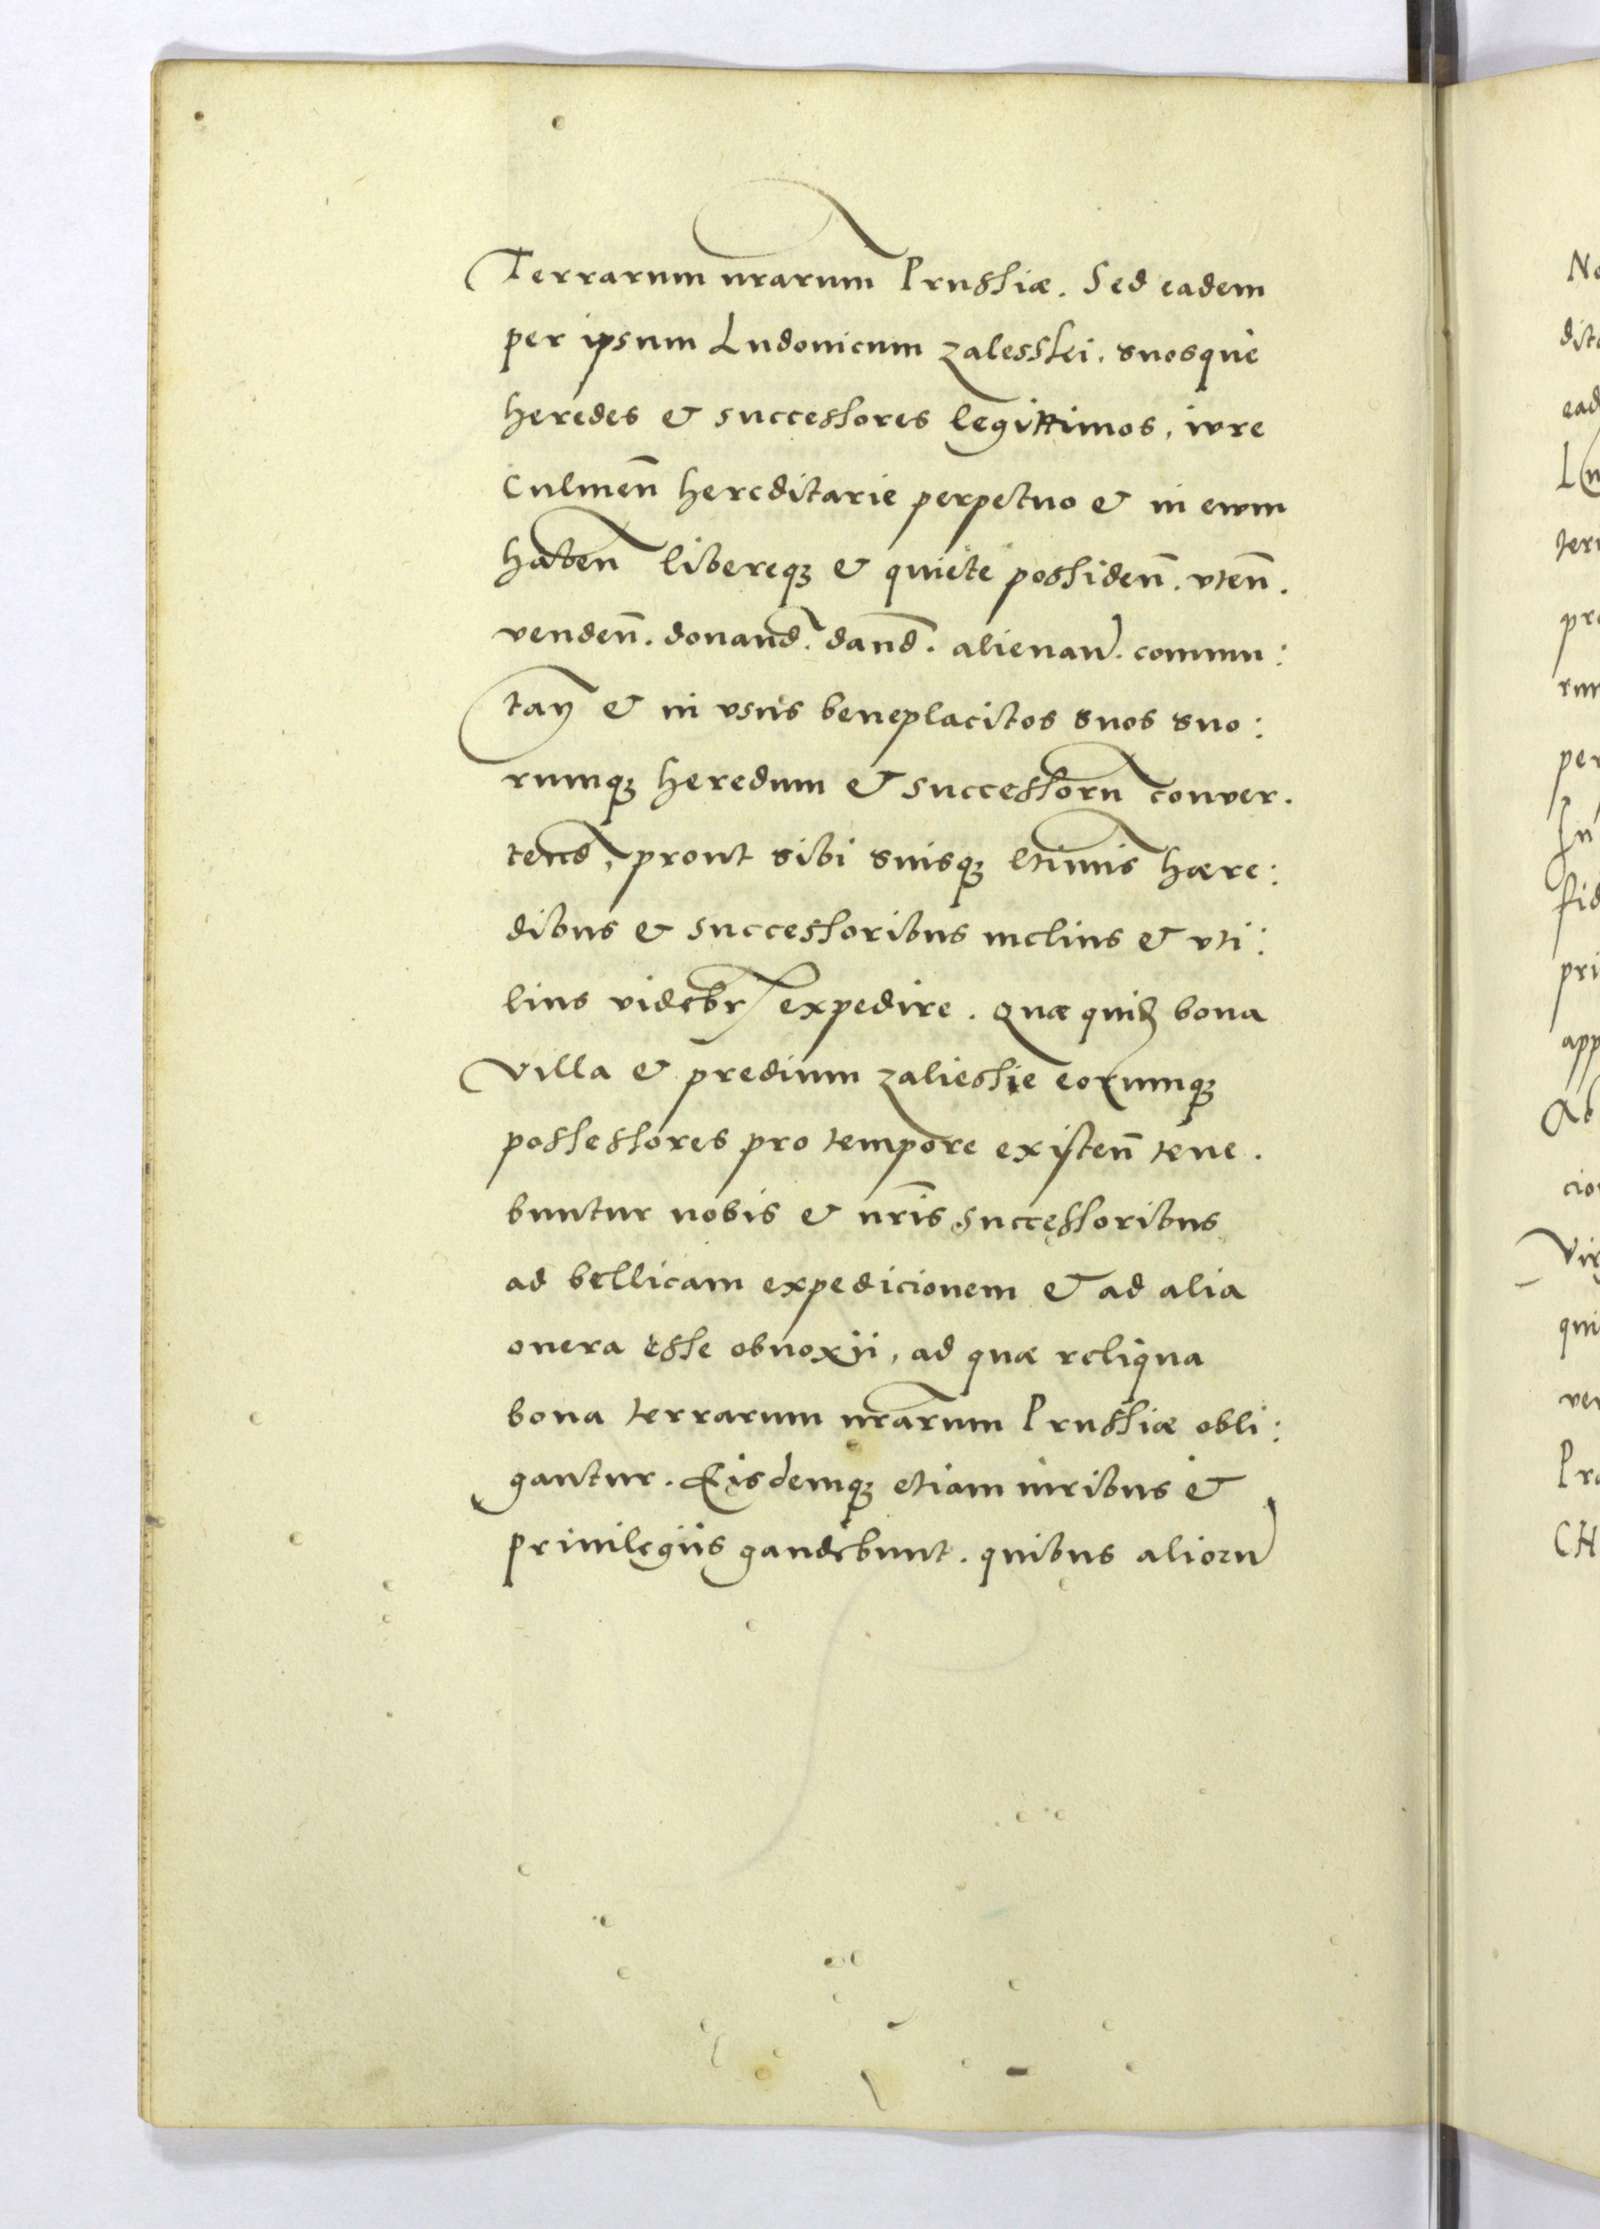 Terrarum nrarum Prussiæ. Sed eadem
per ipsum Ludouicum Zalesskei. suosque
heredes & successores legittimos, iure
Culmen̄ hereditarie perpetuo & in ewm
haben̄ libereqꝫ & quiete possiden̄. vten̄.
venden̄. donand̄. dand̄. alienan̄. commu:
tan̄ & in vsus beneplacitos suos suo:
rumqꝫ heredum & successorū conuer.
tend̄, prout sibi suisqꝫ ltimis hære:
dibus & successoribus melius & vti:
lius videbr̄ expedire. Quæ quidꝫ bona
villa & predium Zaliessie eorumqꝫ
possessores pro tempore existen̄ tene.
buntur nobis & nr̄is successoribus
ad bellicam expedicionem & ad alia
onera esse obnoxii, ad quæ reliqua
bona terrarum nrārum Prussiæ obli:
gantur. Eisdemqꝫ etiam iuribus &
priuilegiis gaudebunt. quibus aliorū
No
dict
ead
Lu
terr
pro
rum
per
In
fid
pri
app
Ab
cio
Vir
qui
ven
Pro
CH